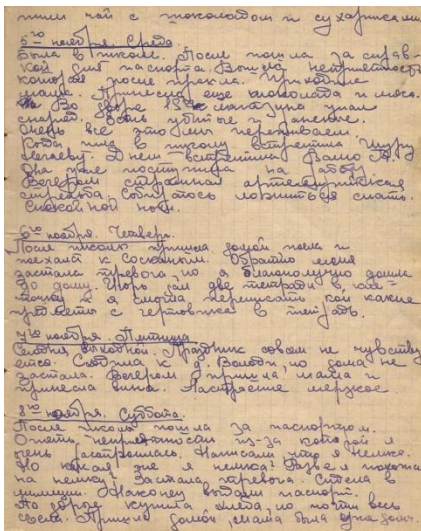 пили чай с шоколадом и сухариками
5го ноября. Среда.
Была в школе. После пошла за справ-
кой для паспорта. Вышла неприятность
которая после прошла. Приходила
мама. Принесла еще шоколада и мяса.
Во дворе магазина упал
снаряд. Есть убитые и раненые.
Очень все это мы переживаем.
Когда шла в школу встретила Шуру
Днем встретила Валю А.
Она тоже поступила на работу
Вечером страшная артиллерийская
стрельба. Собираюсь ложиться спать.
Спокойной ночи.
6го ноября. Четверг.
После школы пришла домой поела и
поехала к Обратно меня
застала тревога, но я благополучно дошла
до дому. Утром две тетради в кле-
точку и я смогла переписать кой какие
предметы с черновика в тетрадь.
7го ноября. Пятница
Сегодня выходной. Праздник совсем не чувству
ется. Сходила к д. Володи, но дома не
застала. Вечером пришла мама и
принесла вина. Настроение мерзкое
8го ноября. Суббота.
После школы пошла за паспортом.
Опять неприятности из-за которой я
очень расстроилась. Написали что я немка.
Но какая же я немка? Разве я похожа
на немку? Застала тревога. Сидела в
милиции. Наконец выдали паспорт.
По дороге купила хлеба, но почти весь
съела. Пришла домой, мама была уже дома.